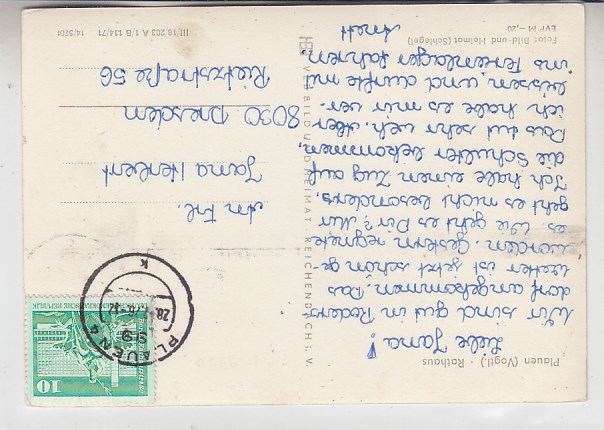 Plauen (Vogtl.) · Rathaus
Liebe Jana!
Wir sind gut in
dorf angekommen. Das
Wetter ist jetzt schön ge-
worden. Gestern regnete
es. Wie geht es Dir? Mir
geht es nicht besonders.
Ich habe einen Zug auf
die Schulter bekommen.
Das tut sehr weh. Aber
ich habe es mir ver-
bissen, und durfte mit
ins Ferienlager fahren.
Anett
Foto: Bild und Heimat (Schlegel)
EVP M -,20
VEB BILD UND HEIMAT · REICHENBACH I. V.
10
PLAUEN 4
99
28.
K
An Frl.
Jana Herbert
8030 Dresden
Rietzstraße 56
III/18/203 A 1/B 114/71
14/5201